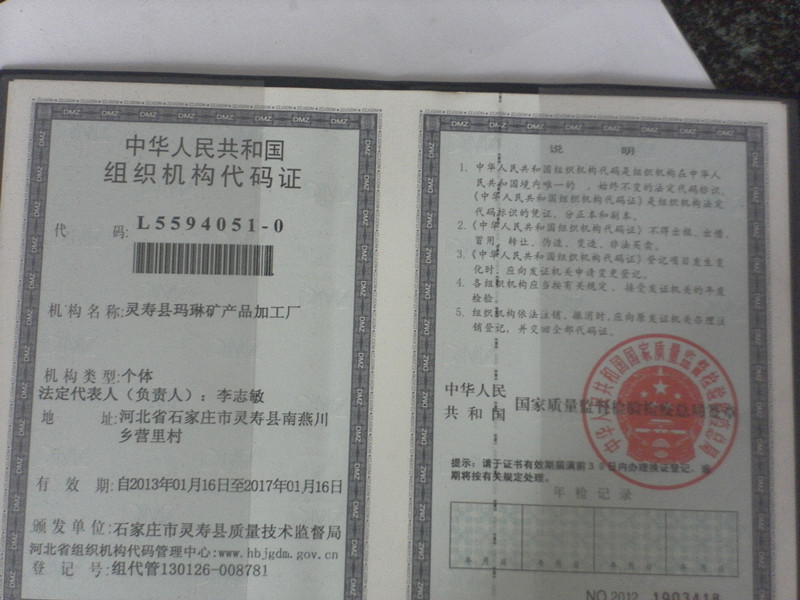 中华人民共和国
组织机构代码证
代 码: L5594051-0
机构名称: 灵寿县玛琳矿产品加工厂
机构类型: 个体
法定代表人（负责人）: 李志敏
地 址: 河北省石家庄市灵寿县南燕川
乡营里村
有 效 期: 自2013年01月16日至2017年01月16日
颁发单位: 石家庄市灵寿县质量技术监督局
河北省组织机构代码管理中心:www.hbjgdm.gov.cn
登 记 号: 组代管130126-008781
说 明
1. 中华人民共和国组织机构代码是组织机构在中华人
民共和国境内唯一的、始终不变的法定代码标识,
《中华人民共和国组织机构代码证》是组织机构法定
代码标识的凭证，分正本和副本。
2. 《中华人民共和国组织机构代码证》不得出租、出借、
冒用、转让、伪造、变造、非法买卖。
3. 《中华人民共和国组织机构代码证》登记项目发生变
化时，应向发证机关申请变更登记。
4. 各组织机构应当按有关规定，接受发证机关的年度
检验。
5. 组织机构依法注销、撤消时，应向原发证机关办理注
销登记，并交回全部代码证。
中华人民
共和国
国家质量监督检验检疫总局签章
中华人民共和国国家质量监督检验检疫总局
提示: 请于证书有效期届满前30日内办理换证登记，逾
期将按有关规定处理。
年检记录
年 月 日 年 月 日 年 月 日 年 月 日
NO.2012 1903418